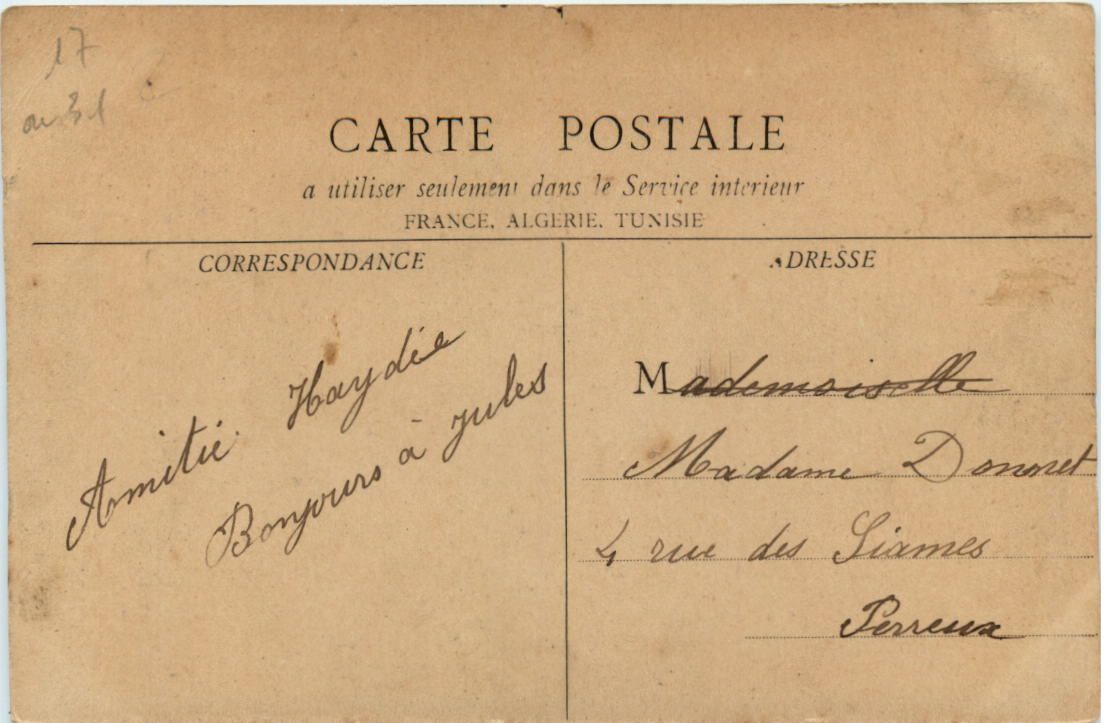 17
CARTE POSTALE
a utiliser seulement dans le Service interieur
FRANCE, ALGERIE, TUNISIE
CORRESPONDANCE
Amitié Haydée
Bonjours à Jules
ADRESSE
Mademoiselle
Madame Donnet
4 rue des Siames
Perreux